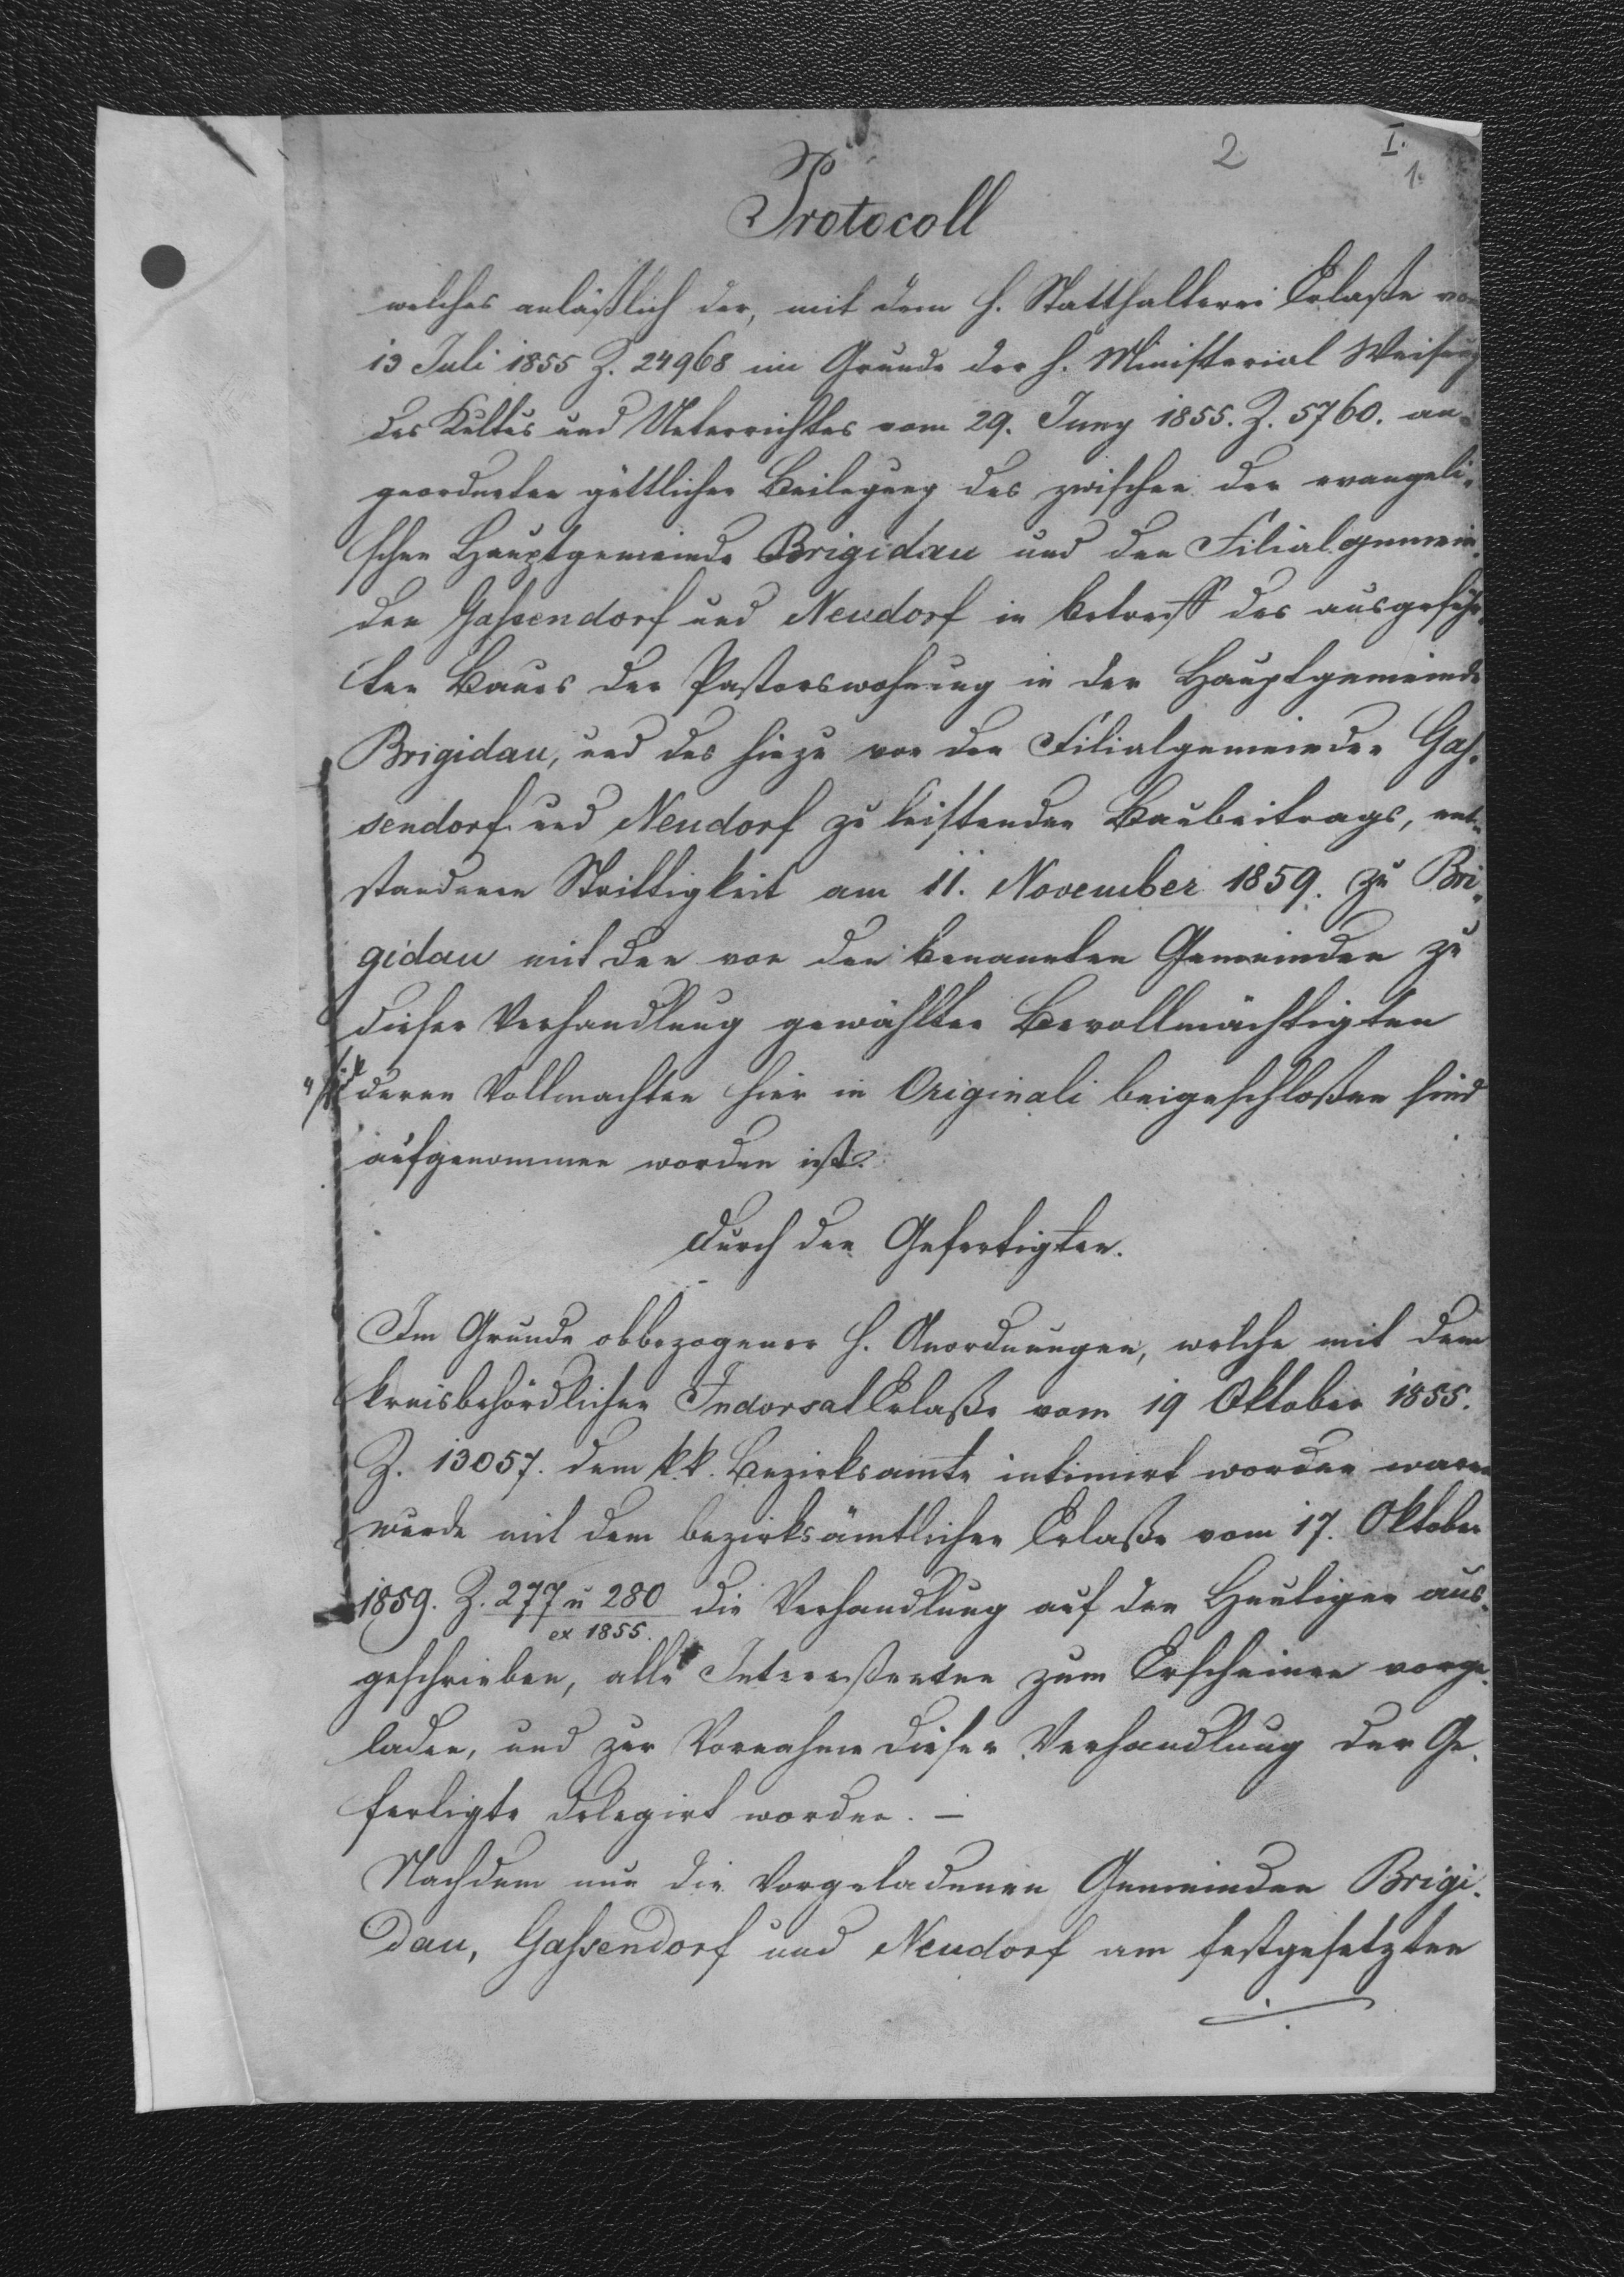 2
I.
1.
Protocoll
welches anläßlich der, mit dem h. Statthalterei Erlaße vom
13 Juli 1855 Z. 24968 im Grunde der h. Ministerial Weisung
des Kultus und Unterrichtes vom 29. Juny 1855. Z. 5760. an-
geordneten güttlichen Beilegung des zwischen der evangeli-
schen Hauptgemeinde Brigidau und den Filialgemein-
den Gassendorf und Neudorf in betreff des ausgeführ-
ten Baues der Pastorswohnung in der Hauptgemeinde
Brigidau, und des hiezu von den Filialgemeinden Gas-
sendorf und Neudorf zu leistenden Baubeitrags, ent-
standenen Strittigkeit am 11. November 1859. zu Bri-
gidau mit den von den benannten Gemeinden zu
dieser Verhandlung gewählten Bevollmächtigten
deren Vollmachten hier in Originali beigeschloßen sind
aufgenommen worden ist.
durch den Gefertigten.
Im Grunde obbezogener h. Anordnungen, welche mit dem
kreisbehördlichen Indorsat Erlaße vom 19 Oktober 1855.
Z. 13057. dem k.k. Bezirksamte intimirt worden waren
wurde mit dem bezirksämtlichen Erlaße vom 17. Oktober
1859. Z. 277 u 280 die Verhandlung auf den Heutigen aus-
ex 1855.
geschrieben, alle Interessenten zum Erscheinen vorge-
laden, und zur Vornahme dieser Verhandlung der Ge-
fertigte delegirt worden. —
Nachdem nun die Vorgeladenen Gemeinden Brigi-
dau, Gassendorf und Neudorf am festgesetzten